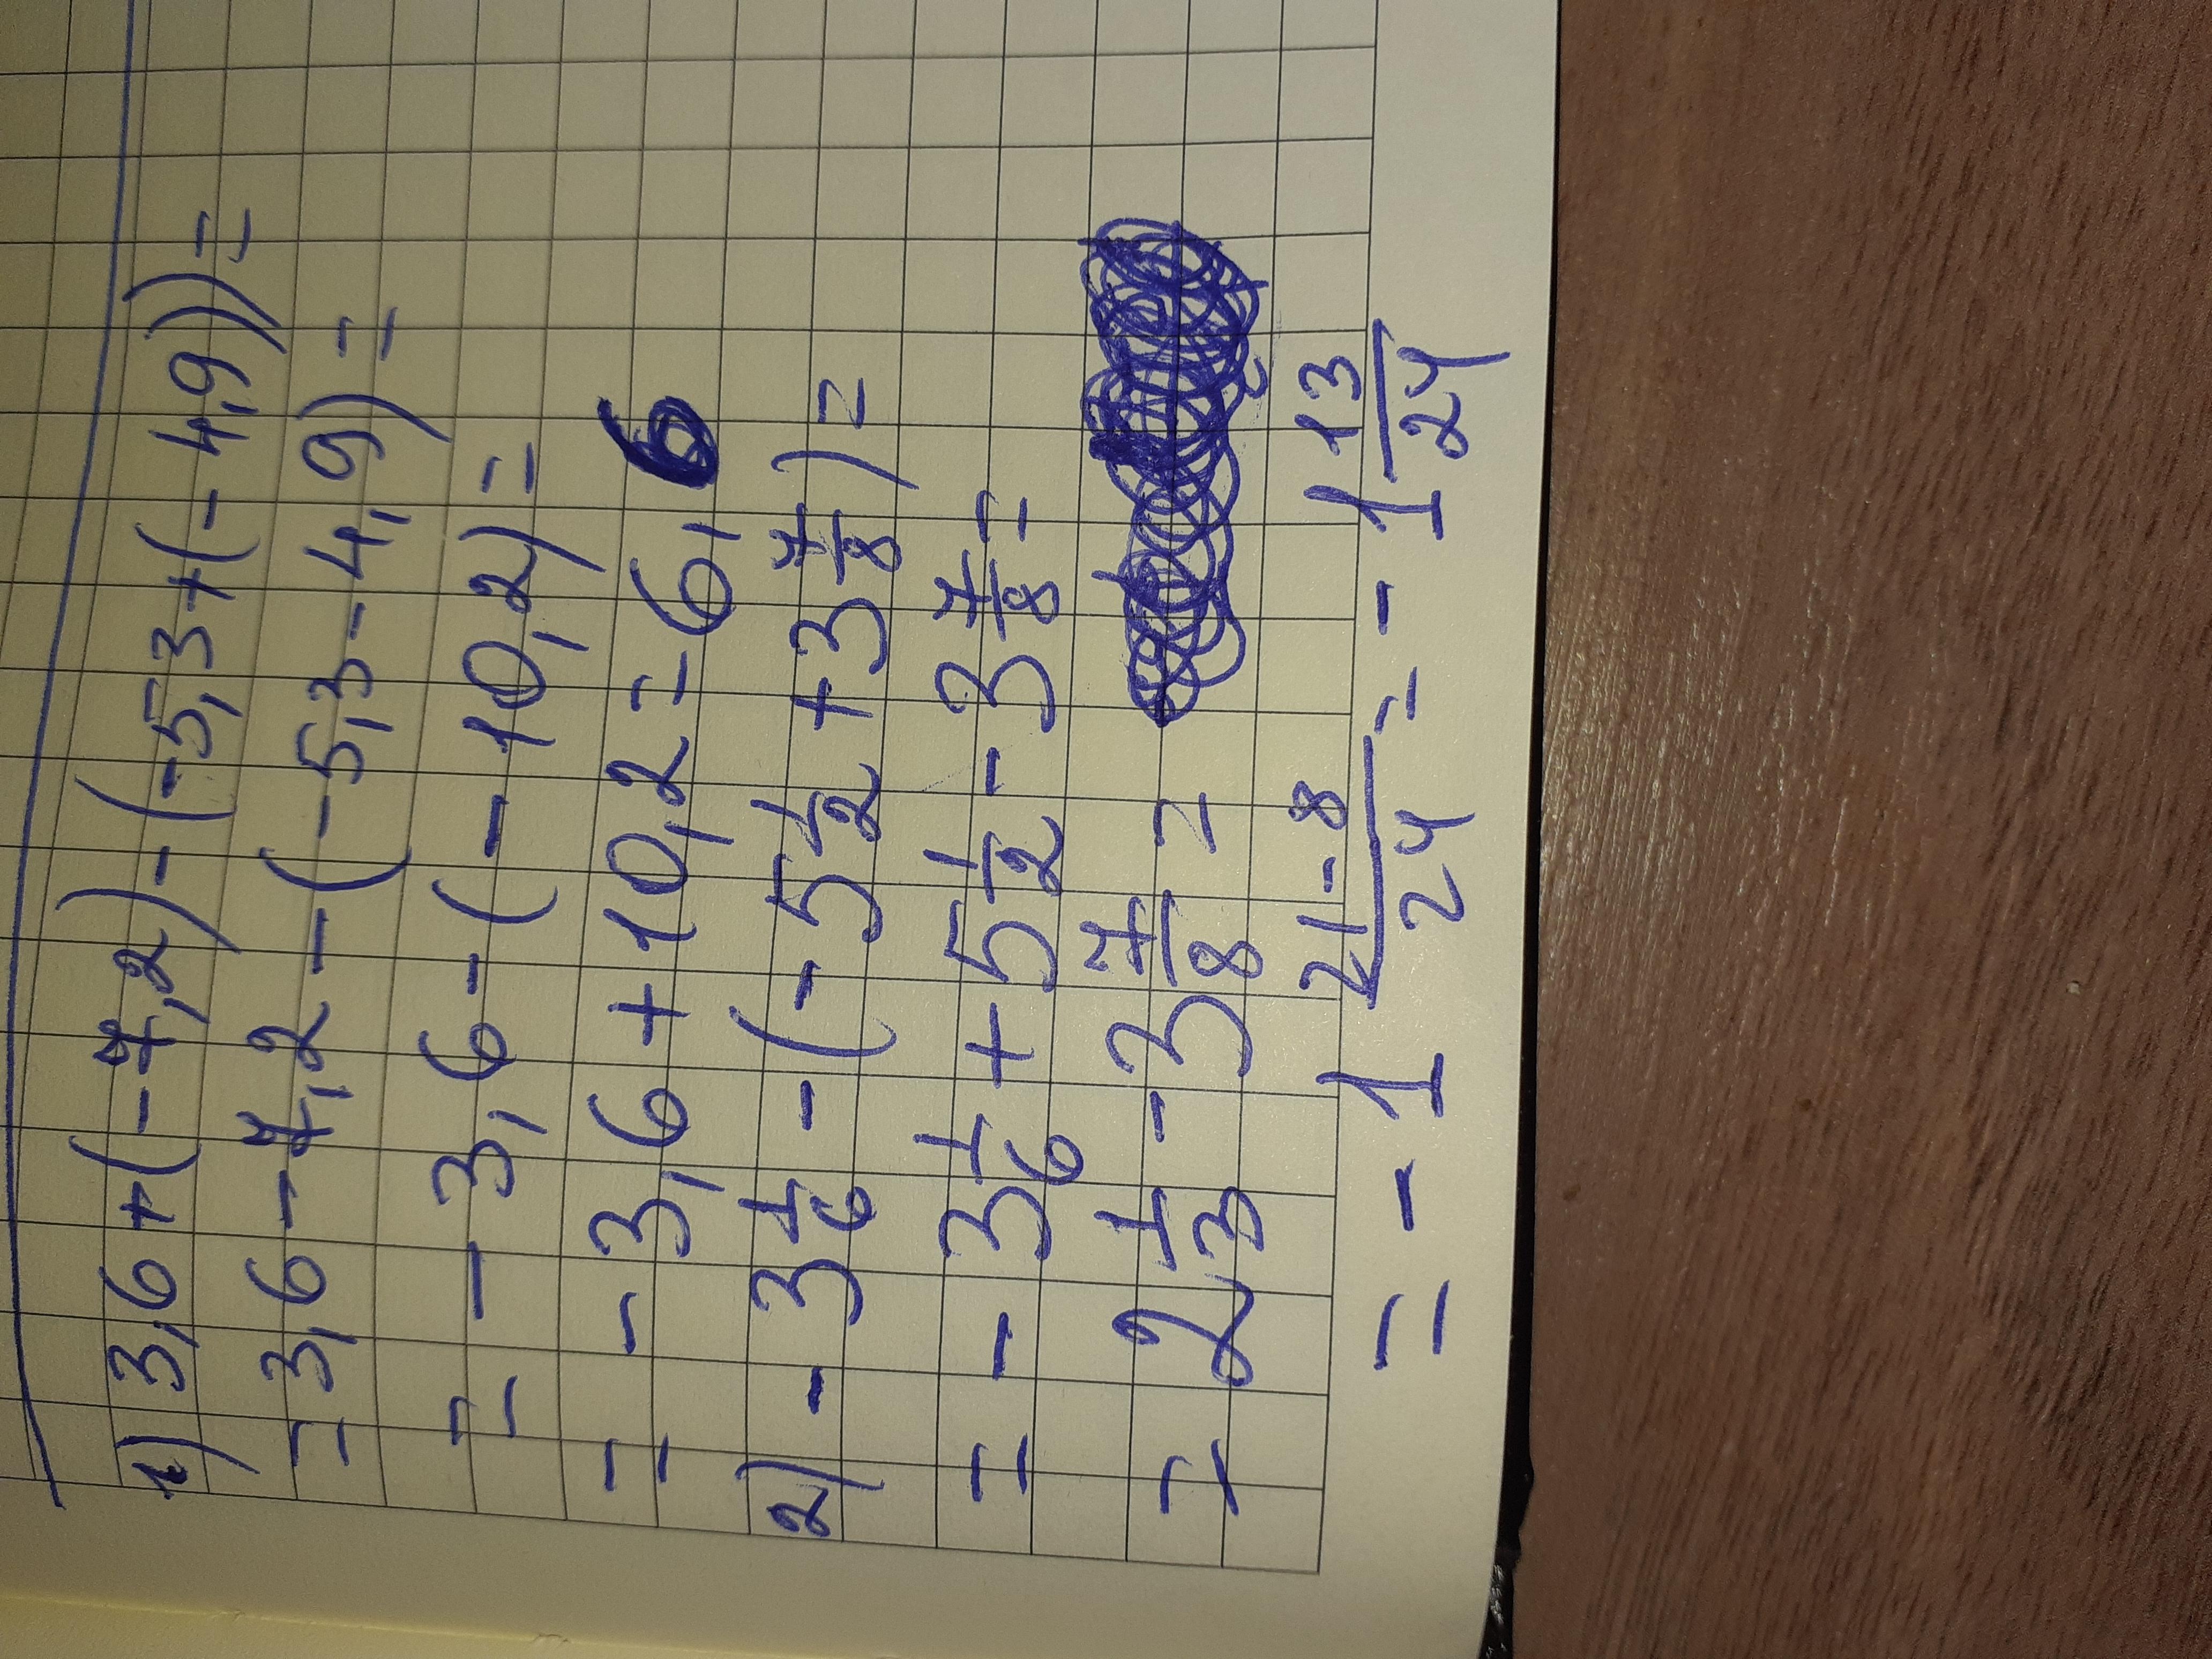 1) 3,6 + (-7,2) - (-5,3 + (-4,9)) =
= 3,6 - 7,2 - (-5,3 - 4,9) =
= -3,6 - (-10,2) =
= -3,6 + 10,2 = 6,6
2) -3 1/6 - (-5 1/2 + 3 7/8) =
= -3 1/6 + 5 1/2 - 3 7/8 =
= 2 1/3 - 3 7/8 =
= -1 21-8/24 = -1 13/24